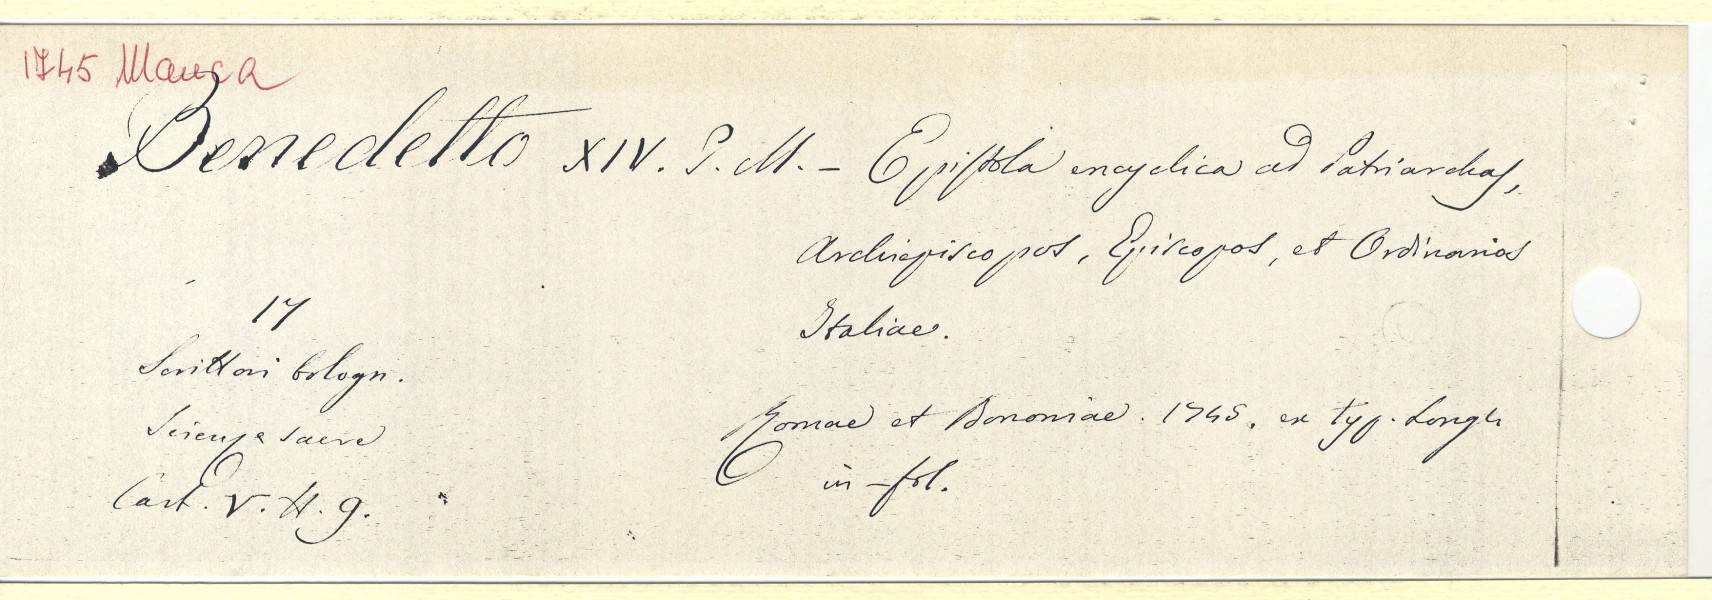 1745 Manca
Benedetto XIV. P. M. - Epistola encyclica ad Patriarchas,
Archiepiscopos, Episcopos, et Ordinarios
Italiae.
17
Scrittori bologn.
Scienze sacre
Cart. V. H. 9.
Romae et Bononiae. 1745. ex typ. Longhi
in-fol.